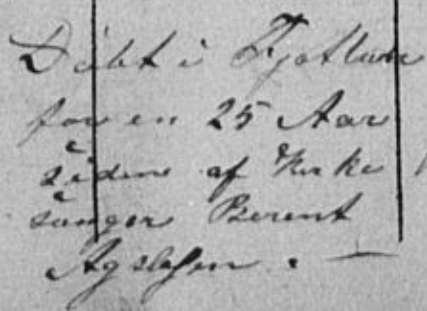 Döbt i Fjotland
for en 25 Aar
siden af Kirke
sanger Berent
Agslesen. —